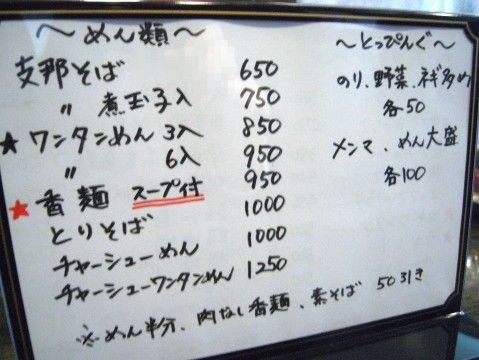 ～めん類～
支那そば 650
〃 煮玉子入 750
★ワンタンめん 3入 850
〃 6入 950
★香麺 スープ付 950
とりそば 1000
チャーシューめん 1000
チャーシューワンタンめん 1250
～とっぴんぐ～
のり、野菜、ネギ多め
各50
メンマ、めん大盛
各100
※めん半分、肉なし香麺、素そば 50引き